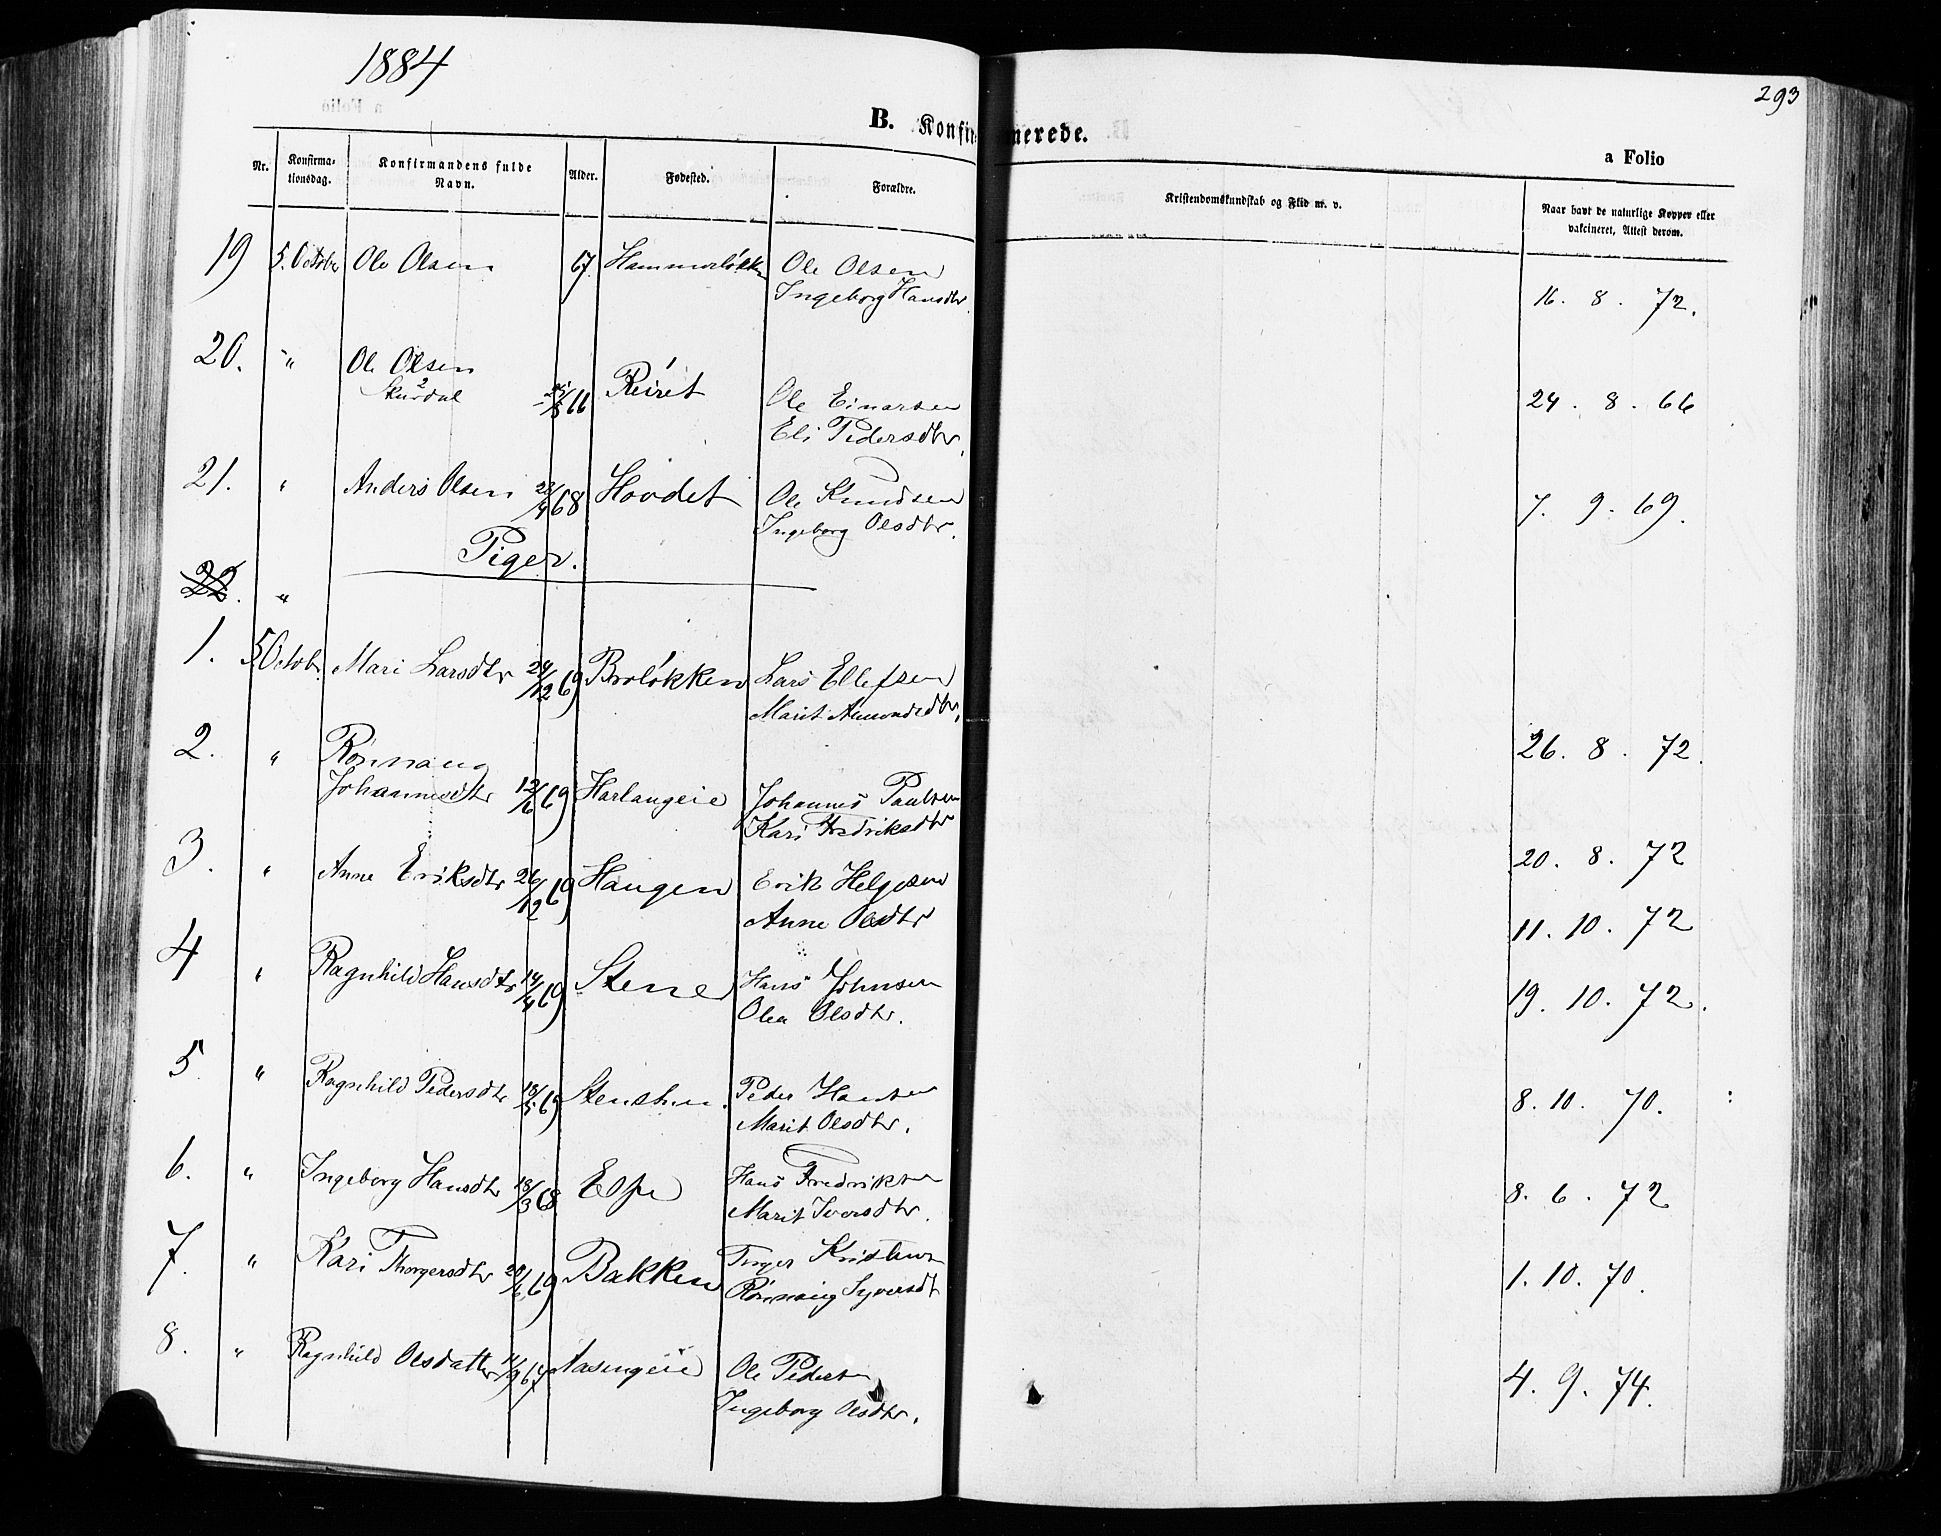 1884
293
B. Konfirmerede.
a Folio
Nr. Konfirma-tionsdag. Konfirmandens fulde Navn. Alder. Fødested. Forældre. Kristendomskundskab og Flid m. v. Naar havt de naturlige Kopper eller vakcineret, Attest derom.
19 5. October Ole Olsen 67. Hammerløkken Ole Olsen
Ingeborg Hansdtr. 16. 8. 72.
20. " Ole Olsen
Skurdal /8 66 Reiret Ole Einarsen 24. 8. 66
Eli Pedersdtr.
21. " Anders Olsen 28/4 68 Hovdet Ole Knudsen 7. 9. 69.
Ingeborg Olsdtr.
Piger.
22. "
1. 5 Octob. Mari Larsdtr 24/12 69 Broløkken Lars Ellefsen
Marit Amundsdtr.
2. " Rønnaug 26. 8. 72.
Johannesdtr 12/6 69 Harlaugeie Johannes Paulsen
Kari Fredriksdtr
3. " Anne Eriksdtr 26/12 69 Haugen Erik Helgesen 20. 8. 72
Anne Olsdtr 11. 10. 72
4 " Ragnhild Hansdtr 14/4 69 Stene Hans Johnsen 19. 10. 72.
Olea Olsdtr.
5. " Ragnhild Pedersdtr 18/5 69 Peder Hansen 8. 10. 70.
Marit Olsdtr.
6. " Ingeborg Hansdtr 18/3 68 Espe Hans Fredriksen 8. 6. 72
Marit Iversdtr.
7. " Kari Thorgersdtr 20/6 69 Bakken Torger Kristensen 1. 10. 70.
Rønnaug Syversdt
8. " Ragnhild Olsdatter 11/9 67 Aasengeie Ole Pedersen 4. 9. 74.
Ingeborg Olsdtr.